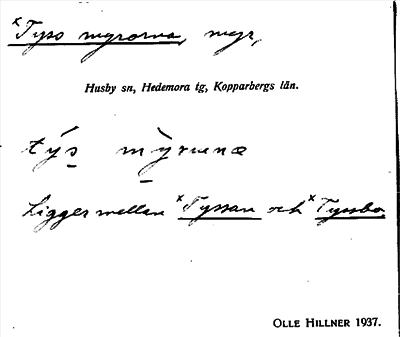 ×Tyso myrorna, myr,
Husby sn, Hedemora tg, Kopparbergs län.
týs mỳruṇæ
Ligger mellan ×Tyssan och ×Tyssbo.
OLLE HILLNER 1937.